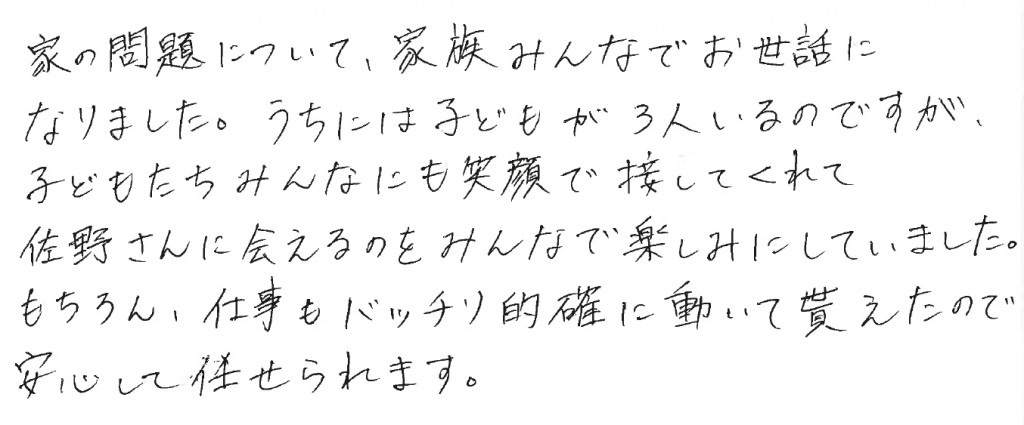 家の問題について、家族みんなでお世話に
なりました。うちには子どもが3人いるのですが、
子どもたちみんなにも笑顔で接してくれて
佐野さんに会えるのをみんなで楽しみにしていました。
もちろん、仕事もバッチリ的確に動いて貰えたので
安心して任せられます。